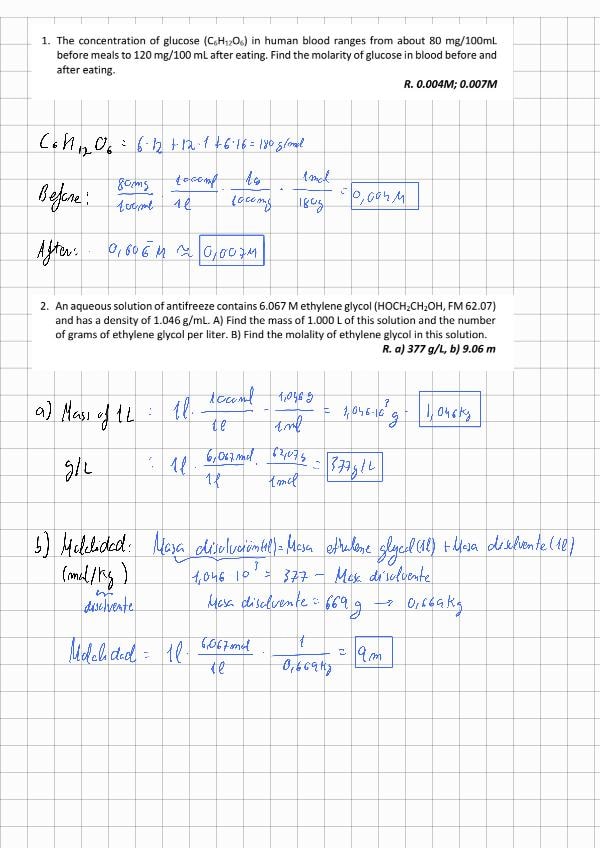 1. The concentration of glucose (C₆H₁₂O₆) in human blood ranges from about 80 mg/100mL
before meals to 120 mg/100 mL after eating. Find the molarity of glucose in blood before and
after eating.
R. 0.004M; 0.007M
C6H12O6 = 6·12 + 12·1 + 6·16 = 180 g/mol
Before: 80mg/100ml · 1000ml/1l · 1g/1000mg · 1mol/180g = 0,004M
After: 0,006̄ M ≈ 0,007M
2. An aqueous solution of antifreeze contains 6.067 M ethylene glycol (HOCH₂CH₂OH, FM 62.07)
and has a density of 1.046 g/mL. A) Find the mass of 1.000 L of this solution and the number
of grams of ethylene glycol per liter. B) Find the molality of ethylene glycol in this solution.
R. a) 377 g/L, b) 9.06 m
a) Mass of 1L : 1l · 1000ml/1l · 1,046g/1ml = 1,046·10³ g · 1,046kg
g/L : 1l · 6,067mol/1l · 62,07g/1mol = 377g/L
b) Molalidad: Masa disolución(1l) = Masa ethylene glycol(1l) + Masa disolvente(1l)
(mol/kg) 1,046 10³ = 377 – Masa disolvente
disolvente Masa disolvente = 669 g → 0,669kg
Molalidad = 1l · 6,067mol/1l · 1/0,669kg = 9m